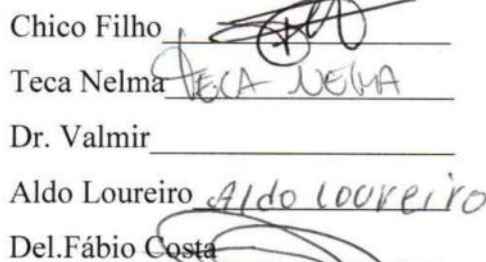 Chico Filho
Teca Nelma TECA NELMA
Dr. Valmir
Aldo Loureiro Aldo Loureiro
Del.Fábio Costa